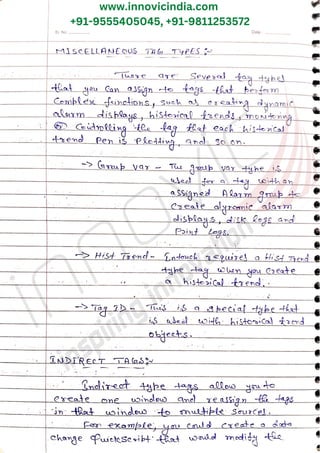 www.innovicindia.com
+91-9555405045, +91-9811253572
MISCELLANEOUS TAG TYPES :-
There are Several tag types
that you can assign to tags that perform
Complex functions, such as creating dynamic
alarm displays, historical trends, monitoring
or Controlling the tag that each historical
trend Pen is Plotting, and so on.
-> Group Var - The group var type is
used for a tag with an
assigned Alarm group to
Create dynamic alarm
displays, disk logs and
Print logs.
-> Hist Trend - Intouch requires a Hist Trend
type tag when you Create
a historical trend.
-> Tag ID - This is a special type that
is used with historical trend
objects.
INDIRECT TAGS :-
Indirect type tags allow you to
Create one window and reassign the tags
in that window to multiple sources.
For example, you could create a data
change QuickScript that would modify the